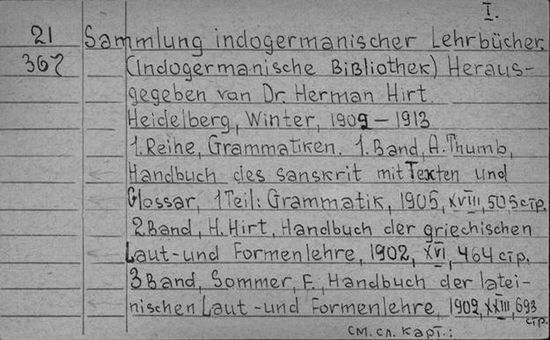 I.
21 Sammlung indogermanischer Lehrbücher.
367 (Indogermanische Bibliothek) Heraus-
gegeben van Dr. Herman Hirt.
Heidelberg, Winter, 1909-1913
1.Reihe, Grammatiken. 1.Band, A.Thumb,
Handbuch des sanskrit mit Texten und
Glossar, 1Teil: Grammatik, 1905, XVIII, 505 стр.
2Band, H.Hirt, Handbuch der griechischen
Laut-und Formenlehre, 1902, XVI, 464 стр.
3Band, Sommer, F., Handbuch der latei-
nischen Laut-und Formenlehre, 1902, XXIII, 693
стр.
см. сл. карт.: